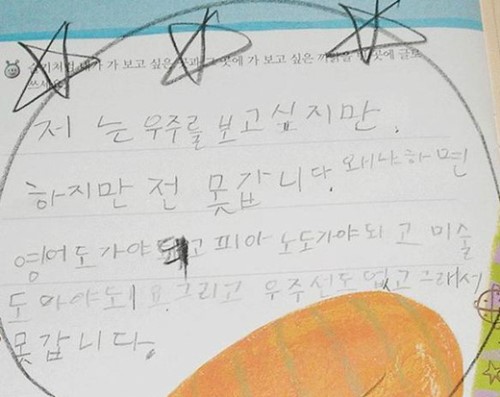 슬기처럼 내가 가 보고 싶은 곳과 그 곳에 가 보고 싶은 까닭을 빈 곳에 글로
쓰세요.
저 는 우주를 보고 싶지만.
하지만 전 못갑니다. 왜냐하면
영어도가야 되고 피아노도가야돠고 미술
도 가야되요. 그리고 우주선도 없고 그래서
못갑니다.